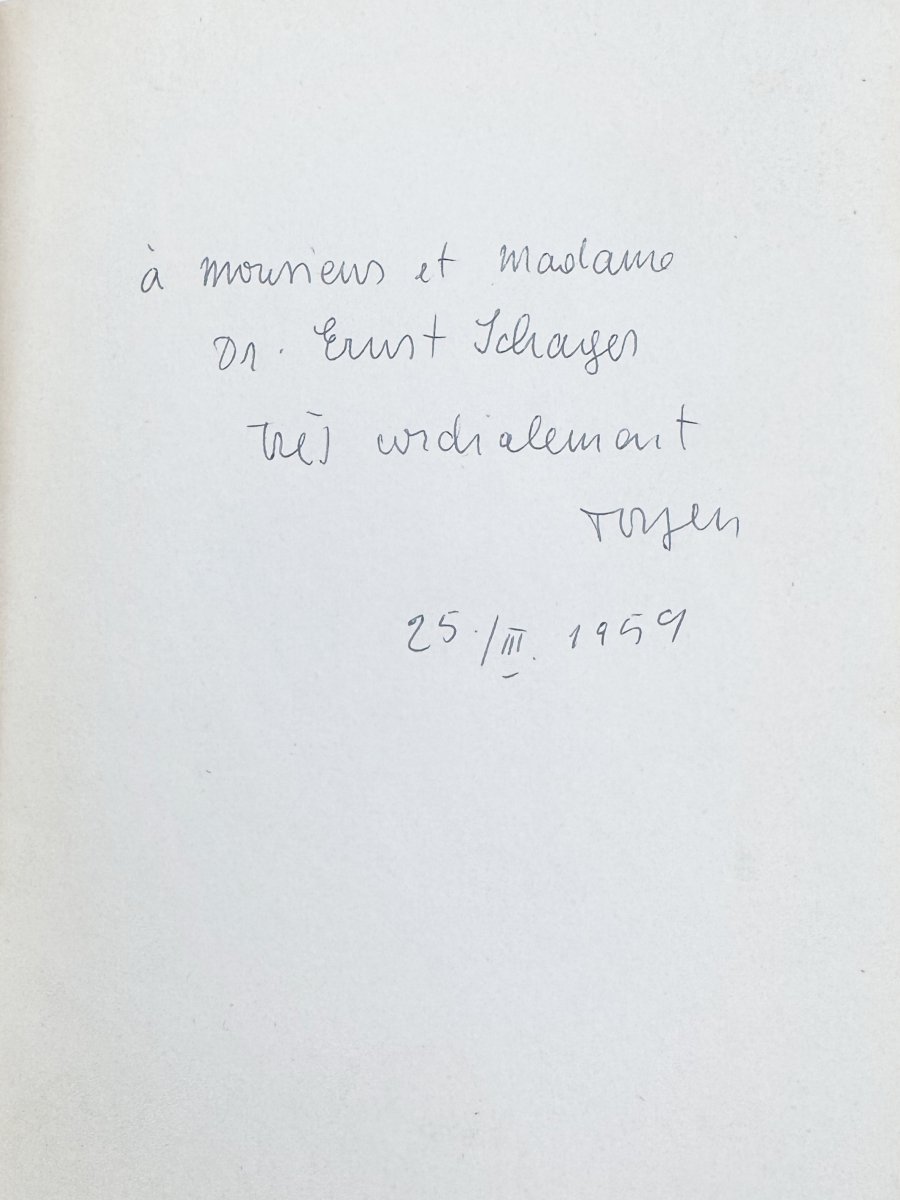 à monsieur et madame
Dr. Ernst Schager
très cordialement
Toyen
25./III. 1959